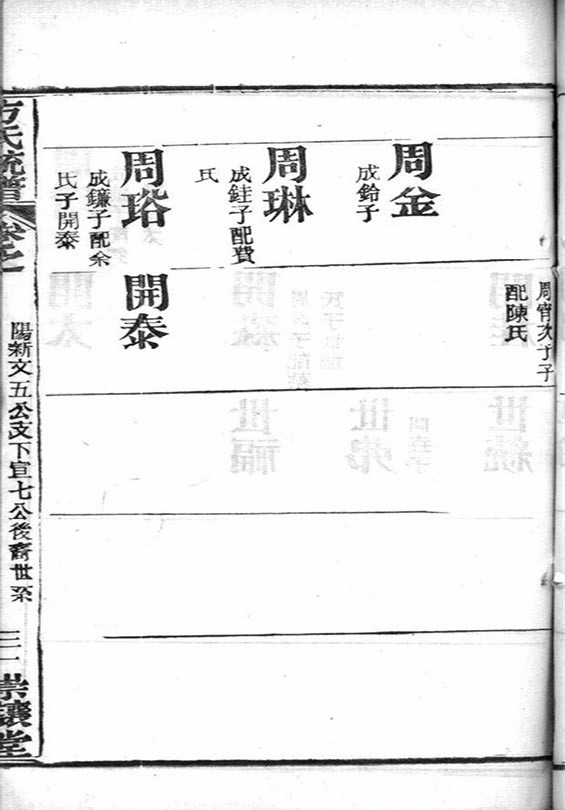 周宵次子子
配陳氏
周金
成鈴子
周琳
成銈子配費
氏
周瑢
成鐮子配余
氏子開泰
開泰
方氏統譜
陽新文五公支下宣七公後裔世系
崇讓堂